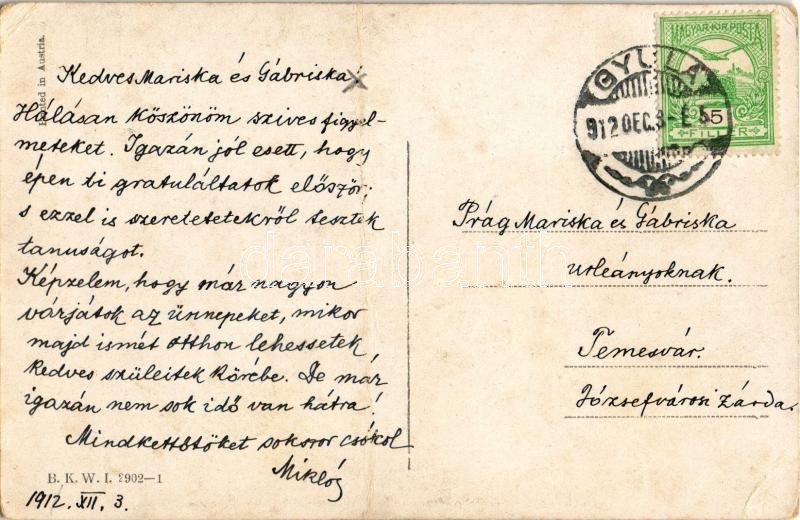 Printed in Austria.
Kedves Mariska és Gábriska!
Hálásan köszönöm szives figyel-
meteket. Igazán jól esett, hogy
épen ti gratuláltatok először,
s ezzel is szeretetetekről tesztek
tanuságot.
Képzelem, hogy már nagyon
várjátok az ünnepeket, mikor
majd ismét otthon lehessetek
kedves szüleitek körébe. De már
igazán nem sok idő van hátra!
Mindkettőtöket sokszor csókol
Miklós
B. K. W. I. 2902—1
1912. XII. 3.
MAGYAR KIR. POSTA
5
FILLÉR
GYULA
912 DEC. 3
Prág Mariska és Gábriska
urleányoknak.
Temesvár.
Józsefvárosi Zárda.
darabanth